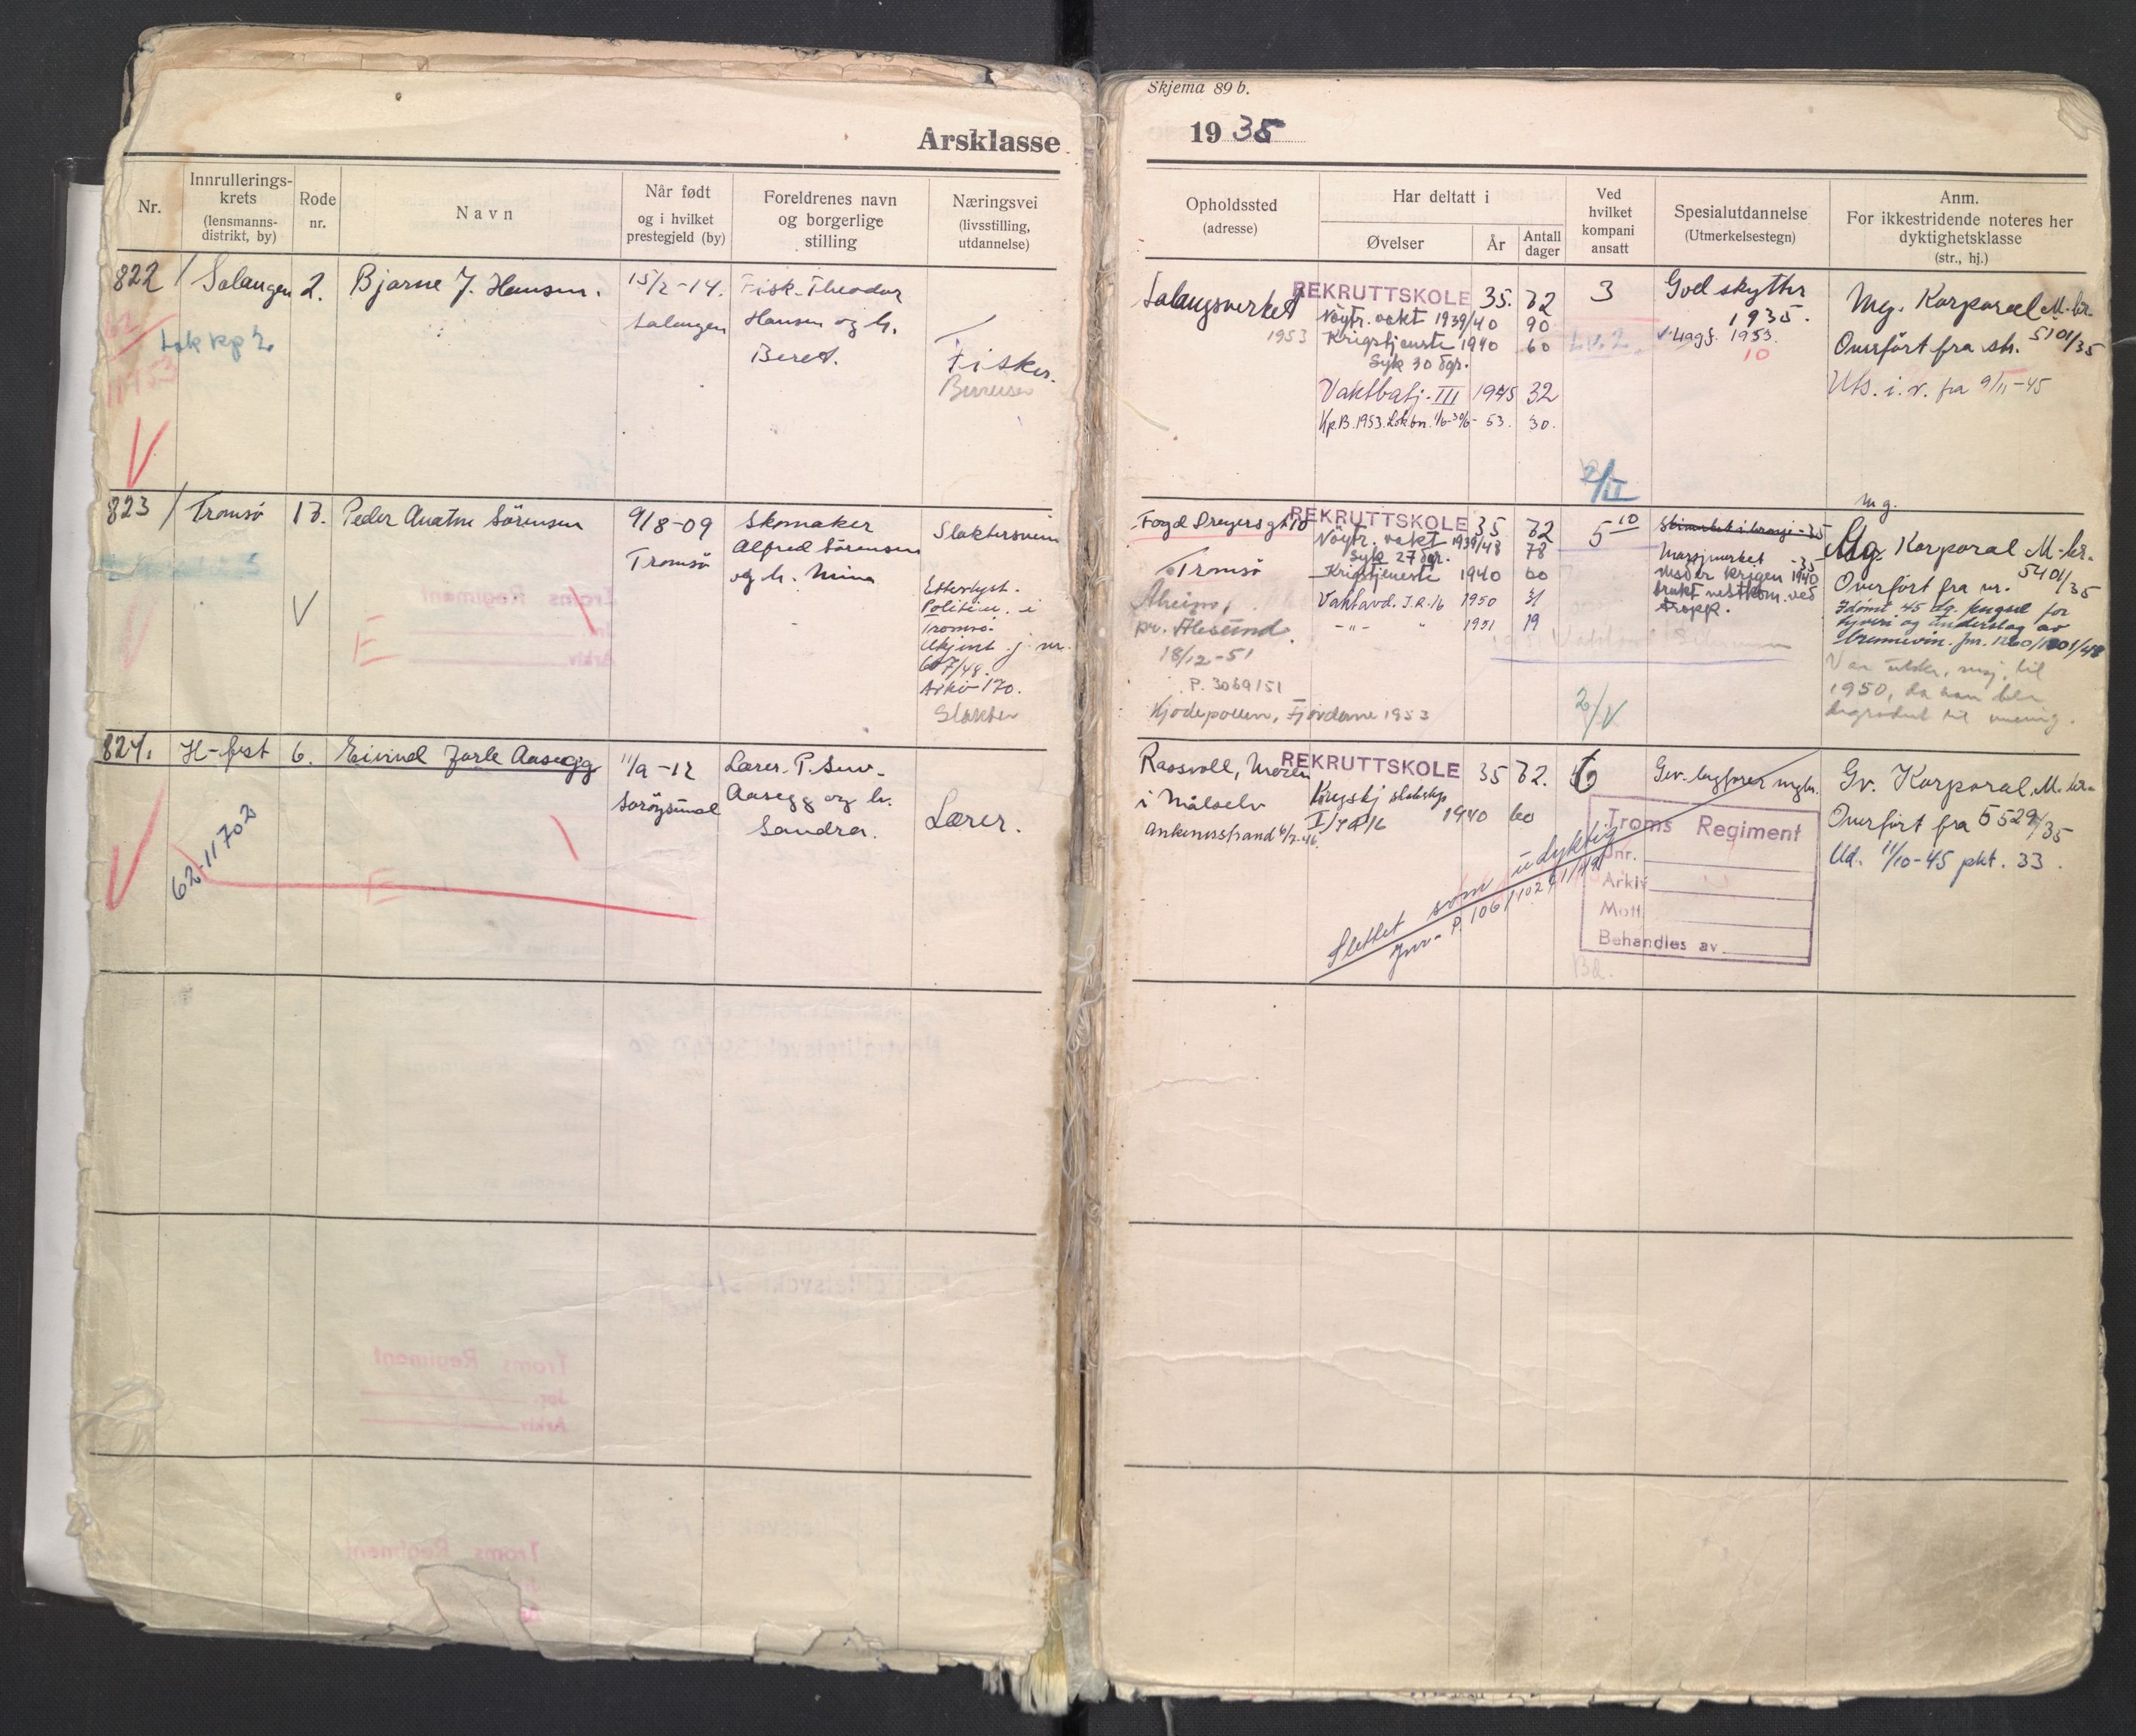 Skjema 89 b.
Årsklasse 1935
Nr.
Innrullerings-
krets
(lensmanns-
distrikt, by)
Rode
nr.
Navn
Når født
og i hvilket
prestegjeld (by)
Foreldrenes navn
og borgerlige
stilling
Næringsvei
(livsstilling,
utdannelse)
Opholdssted
(adresse)
Har deltatt i
Øvelser
År
Antall
dager
Ved
hvilket
kompani
ansatt
Spesialutdannelse
(Utmerkelsestegn)
Anm.
For ikkestridende noteres her
dyktighetsklasse
(str., hj.)
822
Salangen
2.
Bjarne J. Hansen.
15/2-14.
Salangen
Fisk. Theodor
Hansen og h.
Beret.
Fisker.
Lok kp 2
V
Salangsverket
1953
REKRUTTSKOLE 35. 72
Nøytr. vakt 1939/40 90
Krigstjeneste 1940 60
Syk 30 dgr.
Vaktbatj. III 1945 32
Kp.B. 1953. Lokbn. 1/6-30/6- 53. 30.
3
Lv. 2.
God skytter
1935.
Lagf. 1953.
10
Mg. Korporal M-kr.
Overført fra str. 5101/35
Uts. i. v. fra 9/11-45
2/II
823
Tromsö
13.
Peder Anaton Sörensen
9/8-09
Tromsö
Skomaker
Alfred Sörensen
og h. Mina
Slaktersvein
Etterlyst.
Politiet i
Tromsö.
Ukjent j. nr.
607/48.
Arkiv 170.
Slakter
V
E
Fogd Dreyersgt 10
Tromsö
Åheim,
pr. Ålesund.
18/12-51
P. 3069/51
Kjødepollen, Fjordane 1953
REKRUTTSKOLE 35 72
Nøytr. vakt 1939/48 78
Syk 27 dgr.
Krigstjeneste 1940 60
Vaktavd. I.R. 16 1950 31
-"- " 1951 19
5 10
2/V
Marsjmerket -35
Under krigen 1940
brukt nestkom. ved
tropp.
mg.
Mg. Korporal M-kr.
Overført fra nr. 5401/35
Idømt 45 dg. fengsel for
tyveri og underslag av
brennevin. jnr. 1260/1301/48
Var utskr. msj. til
1950, da han ble
degradert til menig.
824.
H-fjest
6.
Eivind Jarle Aasegg
11/9-12
Sørøysund
Lærer. P. Sev-
Aasegg og h.
Sandra.
Lærer.
62-11702
E
Rassvoll, Moen
i Målselv
Ankenesstrand 6/2-46.
REKRUTTSKOLE 35 72.
Krigstj stabskp
I/IR 16 1940 60
6
Gev. lagfører ngbr.
Slettet som udyktig
Jnr- P. 106/1029/1/49
Troms Regiment
Jnr.
Arkiv
Mott.
Behandles av
Gv. Korporal. M-kr.
Overført fra 5529/35
Ud. 11/10-45 pkt. 33.